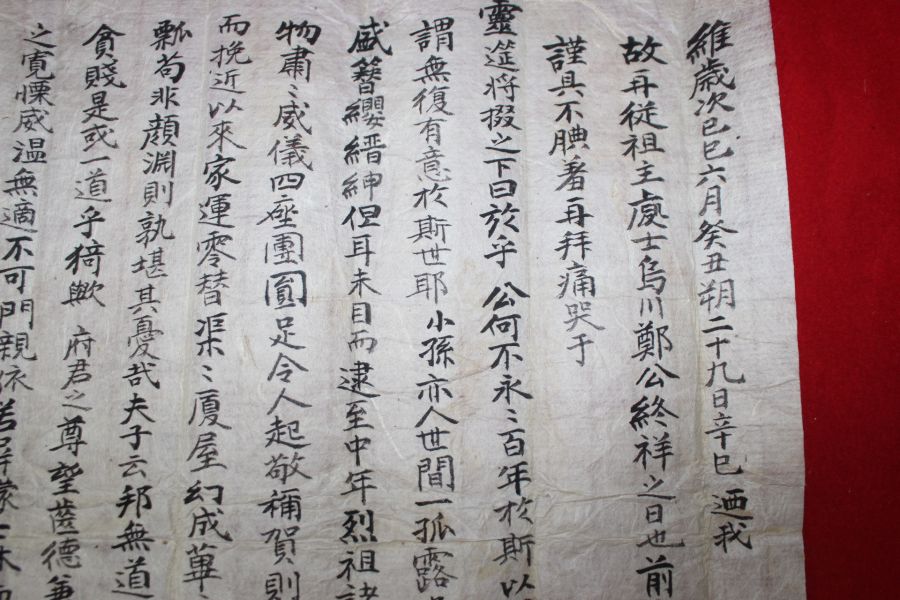 維歲次己巳六月癸丑朔二十九日辛巳 迺我
故再従祖主處士烏川鄭公終祥之日也前
謹具不腆著再拜痛哭于
靈筵将掇之下曰於乎 公何不永〻百年於斯以
謂無復有意於斯世耶 小孫亦人世間一孤露
盛簪纓縉紳但耳未目而逮至中年烈祖諸
物肅〻威儀四座團圓足令人起敬稱賀則
而挽近以來家運零替渠〻廈屋幻成蓽
瓢苟非顔淵則孰堪其憂哉夫子云邦無道
貧賤是或一道乎猗歟 府君之尊堂蓋德兼
之寬慄威温無適不可門親依